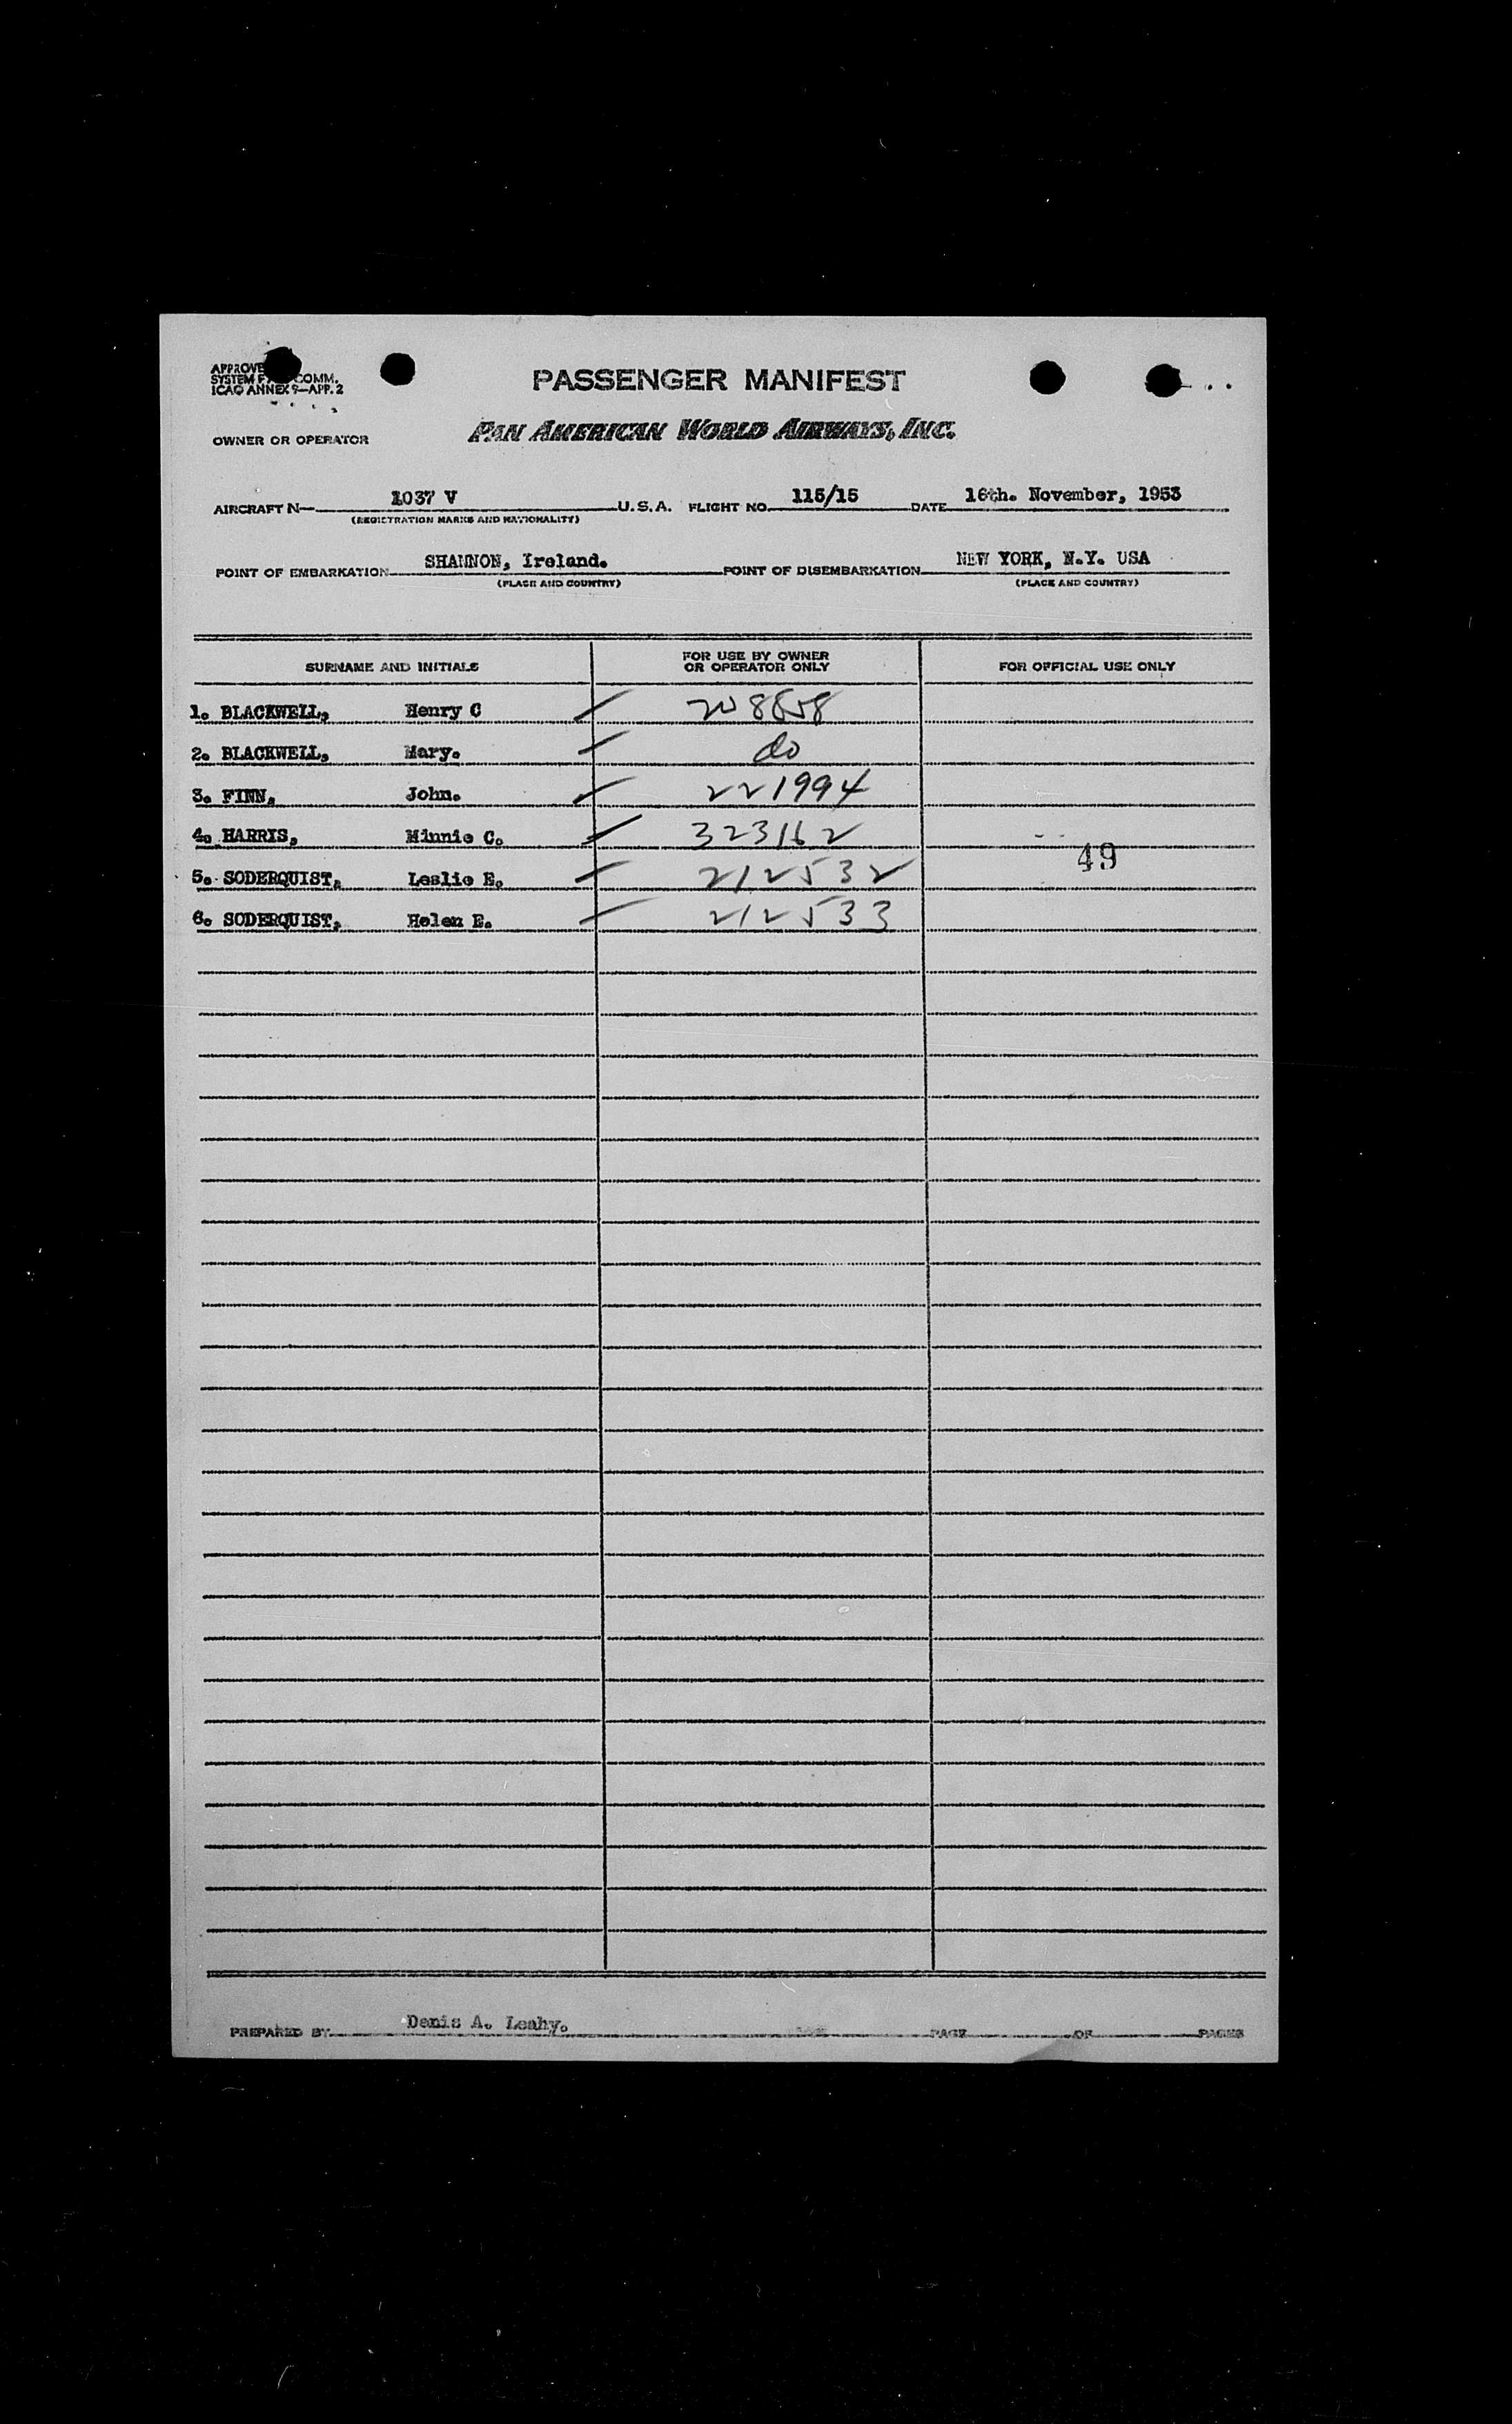 APPROVE
SYSTEM F COMM.
ICAO ANNEX 9—APP. 2
PASSENGER MANIFEST
OWNER OR OPERATOR PAN AMERICAN WORLD AIRWAYS, INC.
AIRCRAFT N— 1037 V U.S.A. FLIGHT NO. 115/15 DATE 16th. November, 1953
(REGISTRATION MARKS AND NATIONALITY)
POINT OF EMBARKATION SHANNON, Ireland. POINT OF DISEMBARKATION NEW YORK, N.Y. USA
(PLACE AND COUNTRY) (PLACE AND COUNTRY)
SURNAME AND INITIALS FOR USE BY OWNER OR OPERATOR ONLY FOR OFFICIAL USE ONLY
1. BLACKWELL, Henry C
2. BLACKWELL, Mary. do
3. FINN, John. 221994
4. HARRIS, Minnie C. 323162
49
5. SODERQUIST, Leslie E. 212532
6. SODERQUIST, Helen E. 212533
PREPARED BY Denis A. Leahy. PAGE OF PAGES